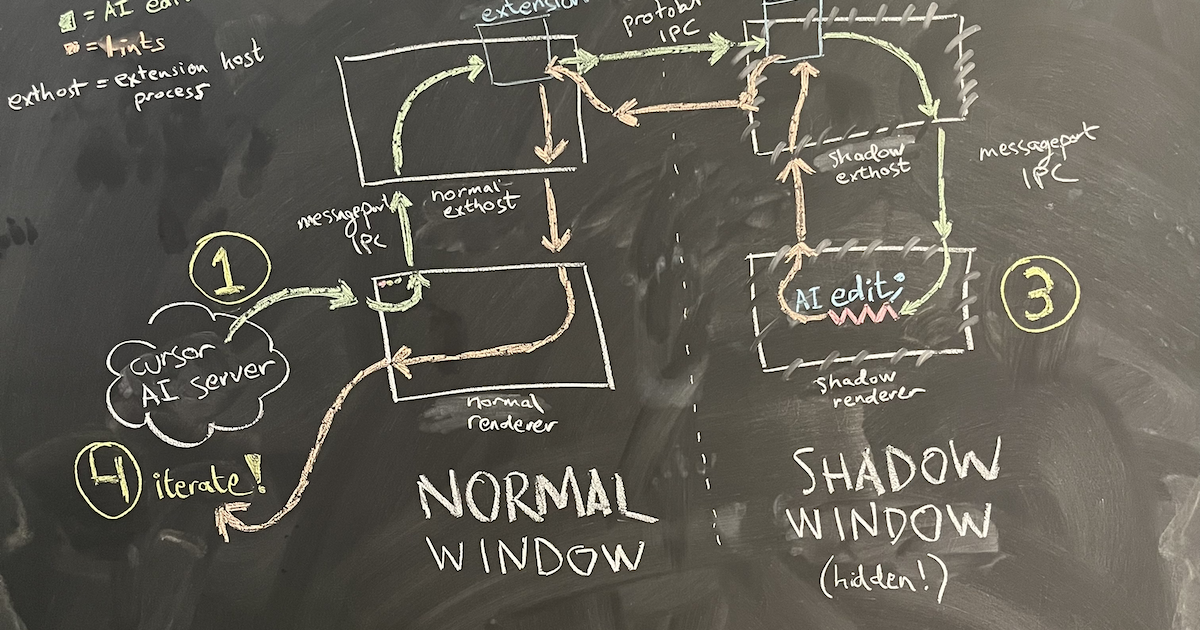 = AI edits
= lints
exthost = extension host
process
extension
protobuf
IPC
normal
exthost
messageport
IPC
shadow
exthost
messageport
IPC
1
cursor
AI server
AI edit;
3
normal
renderer
shadow
renderer
4 iterate!
NORMAL
WINDOW
SHADOW
WINDOW
(hidden!)